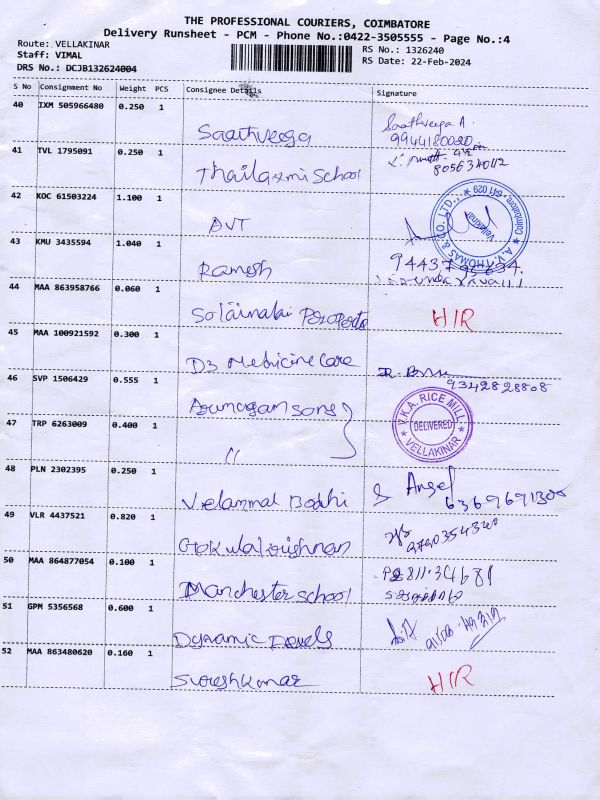 THE PROFESSIONAL COURIERS, COIMBATORE
Delivery Runsheet - PCM - Phone No.:0422-3505555 - Page No.:4
Route: VELLAKINAR
RS No.: 1326240
Staff: VIMAL
RS Date: 22-Feb-2024
DRS No.: DCJB132624004
S No Consignment No Weight PCS Consignee Details Signature
40 IXM 505966480 0.250 1
Saathveega
Saathveega A.
9944180020
41 TVL 1795091 0.250 1
Thailaxmi School
42 KOC 61503224 1.100 1
AVT
A.V. THOMAS & CO. LTD., Coimbatore - 641 029
Vellakinar
43 KMU 3435594 1.040 1
Ramesh
44 MAA 863958766 0.060 1
HIR
45 MAA 100921592 0.300 1
D3 Medicine Care
9342828808
46 SVP 1506429 0.555 1
Arumugam Sons
V.K.A. RICE MILL
DELIVERED
VELLAKINAR
47 TRP 6263009 0.400 1
"
48 PLN 2302395 0.250 1
Velammal Bodhi
Angel
49 VLR 4437521 0.820 1
Gokulakrishnan
50 MAA 864877054 0.100 1
Manchester School
51 GPM 5356568 0.600 1
Dynamic
52 MAA 863480620 0.160 1
Sureshkumar
HIR